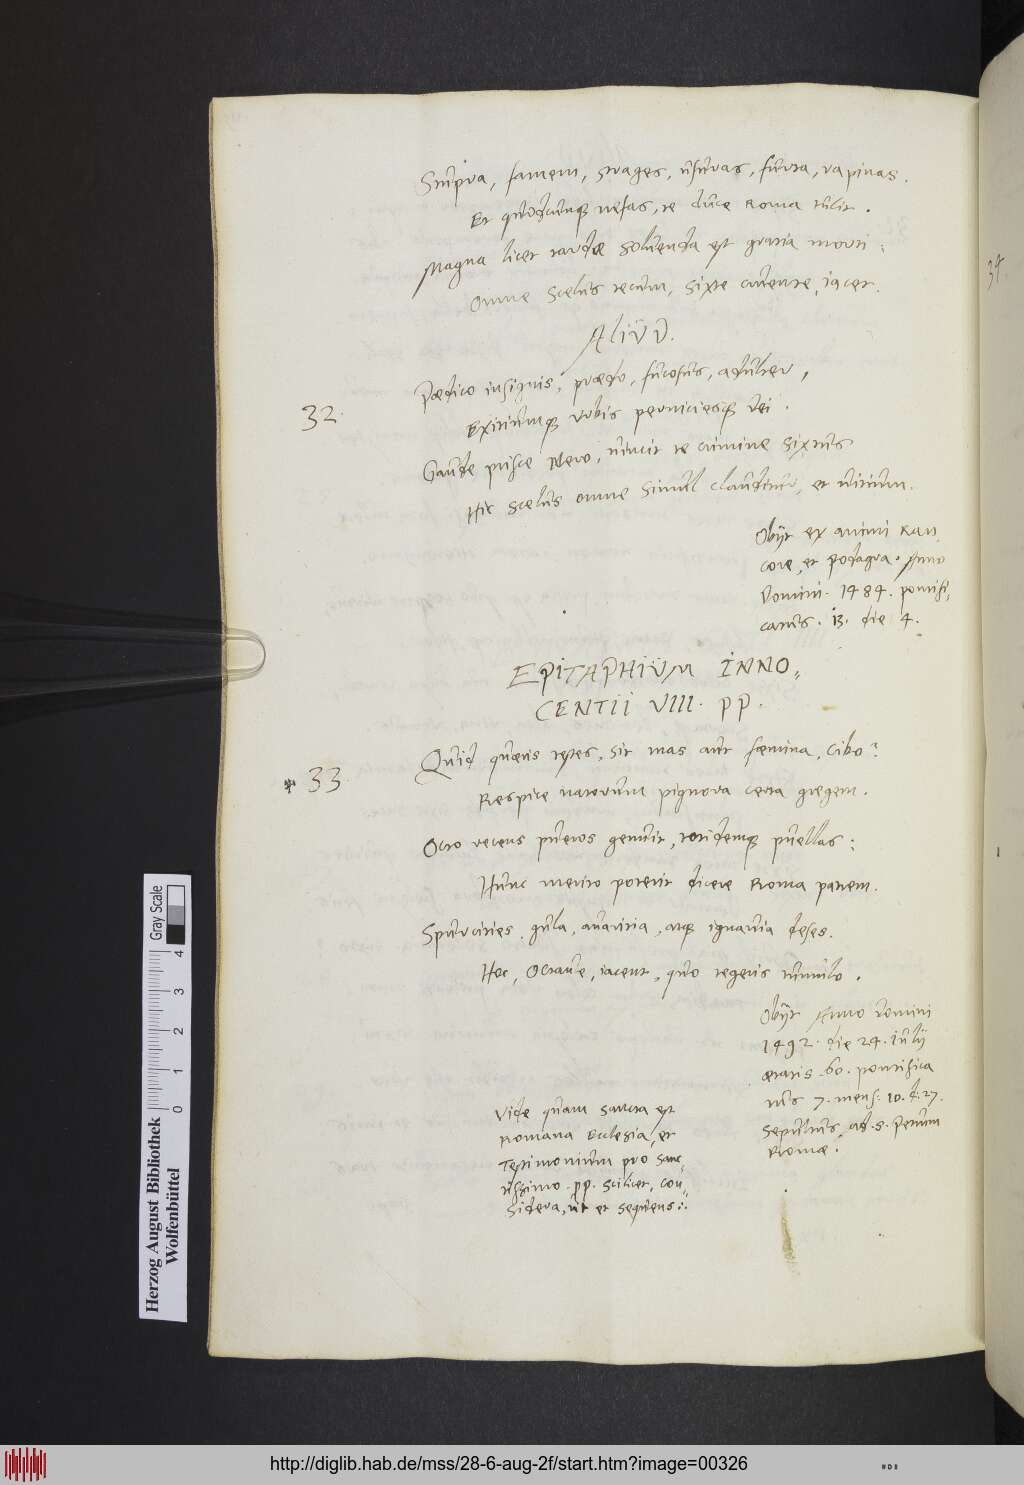 Stupra, famem, strages, usuras, furta, rapinas.
Et quodcunque nefas, te duce Roma tulit.
Magna licet tarde soluenda est gratia morti:
Omne scelus tecum, Sixte cruente, iacet.
ALIUD.
32. Pædico insignis, prædo, fucosus, adulter,
Exitiumque Urbis perniciesque Dei.
Gaude prisce Nero, uincit te crimine Sixtus
Hic scelus omne simul clauditur, et uitium.
Obijt ex animi Ran
core, et podagra. Anno
Domini. 1484. pontifi,
catus. 13. die 4.
EPITAPHIUM INNO,,
CENTII VIII. PP.
33. Quid quæris testes, sit mas aut fæmina, Cibo?
Respice natorum pignora certa gregem.
Octo recens pueros genuit, totidemque puellas:
Hunc merito poterit dicere Roma patrem.
Spurcities, gula, auaritia, atque ignauia deses.
Hoc, Octaue, iacent, quo tegeris tumulo.
Obijt Anno Domini
1492. die 24. Iulij
ætatis. 60. pontifica
tus 7. mens: 10. d: 27.
Sepultus ad. S. Petrum
Romæ.
Vide quam sancta est
Romana Ecclesia, et
Testimonium pro sanc,,
tissimo. pp. scilicet, con,,
sidera, ut et sequens:.
34.
Herzog August Bibliothek
Wolfenbüttel
0 1 2 3 4
Gray Scale
http://diglib.hab.de/mss/28-6-aug-2f/start.htm?image=00326